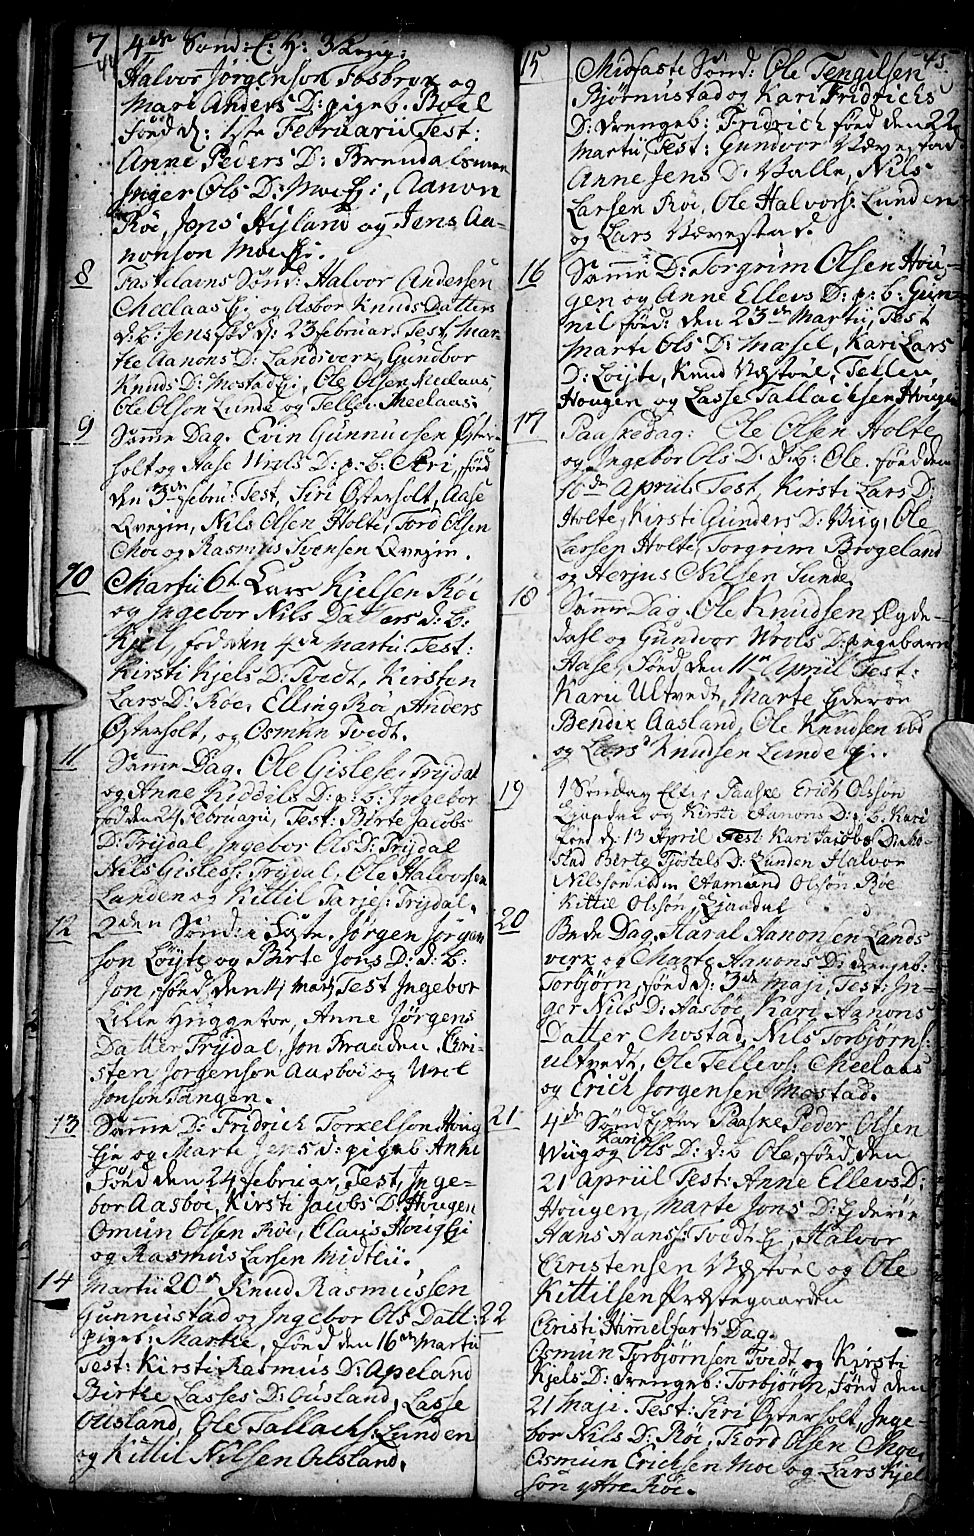 44
7 4de Sønd: E: H: 3 Kong:
Halvor Jørgenson Fosbroe og
Mari Anders D: pigeb. Bosel
Fønd d: 1ste Februarii Test:
Anne Peders D: Brendalsmoen
Inger Ols D: Moe Ej:, Aanon
Røe, Jens Hyland og Jens Aa-
nonson Moe Ej:
8 Fastelavns Sønd: Halvor Andersen
Meelaas Ej: og Asbor Knuds Datters
d: b: Jens fød d: 23 februar, Test, Mar-
the Aanons D: Landsverk, Gundbor
Knuds D: Mostad Ej:, Ole Olsen Meelaas,
Ole Olson Lunde og Tellev Meelaas.
9 Samme Dag. Evin Gunnuldsen Øster-
holt og Aase Wrols D: p: b: Siri, fønd
den 3de febru: Test, Siri Østerholt, Aase
Qvegin, Nils Olsen Holte, Tord Olsen
Moe og Rasmus Svensen Qvegin.
10 Martii 6te Lars Kjelsen Røe
og Ingebor Nils Datters d: b:
Kjel, fød den 4de Martii Test:
Kirsti Kjels D: Tvedt, Kirsten
Lars D: Røe, Elling Røe, Anders
Østerholt, og Osmun Tvedt.
11 Samme Dag. Ole Gislesen Trydal
og Anne Kiddils D: p: b: Ingebor
fød den 24 Februarii, Test: Birte Jacobs
D: Trydal, Ingebor Ols D: Trydal
Nils Gisles: Trydal, Ole Halvorsen
Landen og Kittil Tarjes: Trydal.
12 2den Søndag i Faste. Jørgen Jørgen
son Løyte og Birte Jons D: d: b:
Jon, fønd den 4 Marty Test Ingebor
Lille Hüggetoe, Anne Jørgens
Datter Trydal, Jon Braaden, Chri-
sten Jorgenson Aasboe og Wril
Jonson Tangen.
13 Samme D: Fridrich Torkelson Houg
Eje og Marte Jens d: pigeb Anne
Fønd den 24 februar, Test, Inge-
bor Aasboe, Kirsti Jacobs D: Hougen
Omun Olsen Røe, Claus Houg Eje
og Rasmus Larsen Midtlii.
14 Martii 20de Knud Rasmussen
Gunnustad og Ingebor Ols Datt:
pigeb: Marthe, fønd den 16de Martii
Test: Kirsti Rasmus D: Apeland
Birthe Lasses D: Ousland, Lasse
Ousland, Ole Tallachs: Lunden
og Kittil Nilsen Ousland.
45
15 Midfaste Sønd: Ole Tengilsen
Bjørnustad og Kari Fridrichs
D: drengeb: Fridrich fønd den 22
Martii, Test: Gundvor Nævestad
Anne Jens D: Valle, Nils
Larsen Røe, Ole Halvors: Lunden
og Lars Nævestad.
16 Samme D: Torgrim Olsen Hou-
gen og Anne Ellevs D: p: b: Gun-
nil fønd: den 23de Martii, Test
Marti Ols D: Masel, Kari Lars
D: Løyte, Knud Næstøel, Tellev
Hougen og Lasse Tallachsen Hougen
17 Paaskedag: Ole Olsen Holte
og Ingebor Ols D: d: b: Ole. fønd den
10de Apriil Test, Kirsti Lars D:
Holte, Kirsti Gunders D: Viig, Ole
Larsen Holte, Torgrim Brogeland
og Herjus Nilsen Sunde
18 Samme Dag. Ole Knudsen Lyde-
dahl og Gundvor Wrols D: pigebarn
Aase, Fønd den 11te Apriil Test:
Karii Ultvedt, Marte Ederoe
Bendix Aasland, Ole Knudsen ibd
og Lars Knudsen Lunde Ej:.
19 1 Sønday Efter Paaske Erich Olsson
Ljaadal og Kirsti Aanons D: p: b: Kari
Fønd d: 13 April Test Kari Jacobs D: Mo-
stad Birte Tjøstals D: Lunden Halvor
Nilsson ibidem Aamund Olson Røe
Kittil Olsson Ljaadal
20 Bede Dag. Haral Aanonsen Lands
verk og Marte Aanons D: drengeb:
Torbjørn, fønd d: 3de Maji, Test: In-
ger Nils D: Aasboe, Kari Aanons
Datter Mostad, Nils Torbjørns:
Ultvedt, Ole Tellevs: Meelaas
og Erich Jorgensen Mostad.
21 4de Sønd Efter Paaske Peder Olsen
Wiig og Kari Ols D: d: b Ole, fønd den
21 Apriil Test: Anne Ellevs D:
Hougen, Marte Jons D: Ederøe
Hans Hanss: Tvedt Ej, Halvor
Christensen Næstøel og Ole
Kittilsen Præstegaarden
22 Christi Himmelfarts Dag.
Osmun Torbjørnsen Tvedt og Kirsti
Kjels D: drengeb: Torbjørn, Fønd den
21 Maji. Test: Siri Østerholt, Inge-
bor Nils D: Røe, Tord Olsen Moe,
Osmun Erichsen Moe og Lars Kjel
søn ytre Røe.